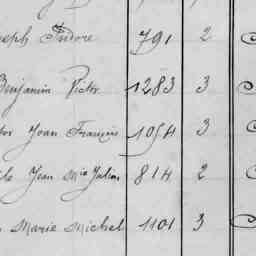 seph Isidore 791 2
Benjamin Victor 1283 3
tor Jean François 1054 3
Jean Mie Julien 814 2
Marie Michel 1101 3